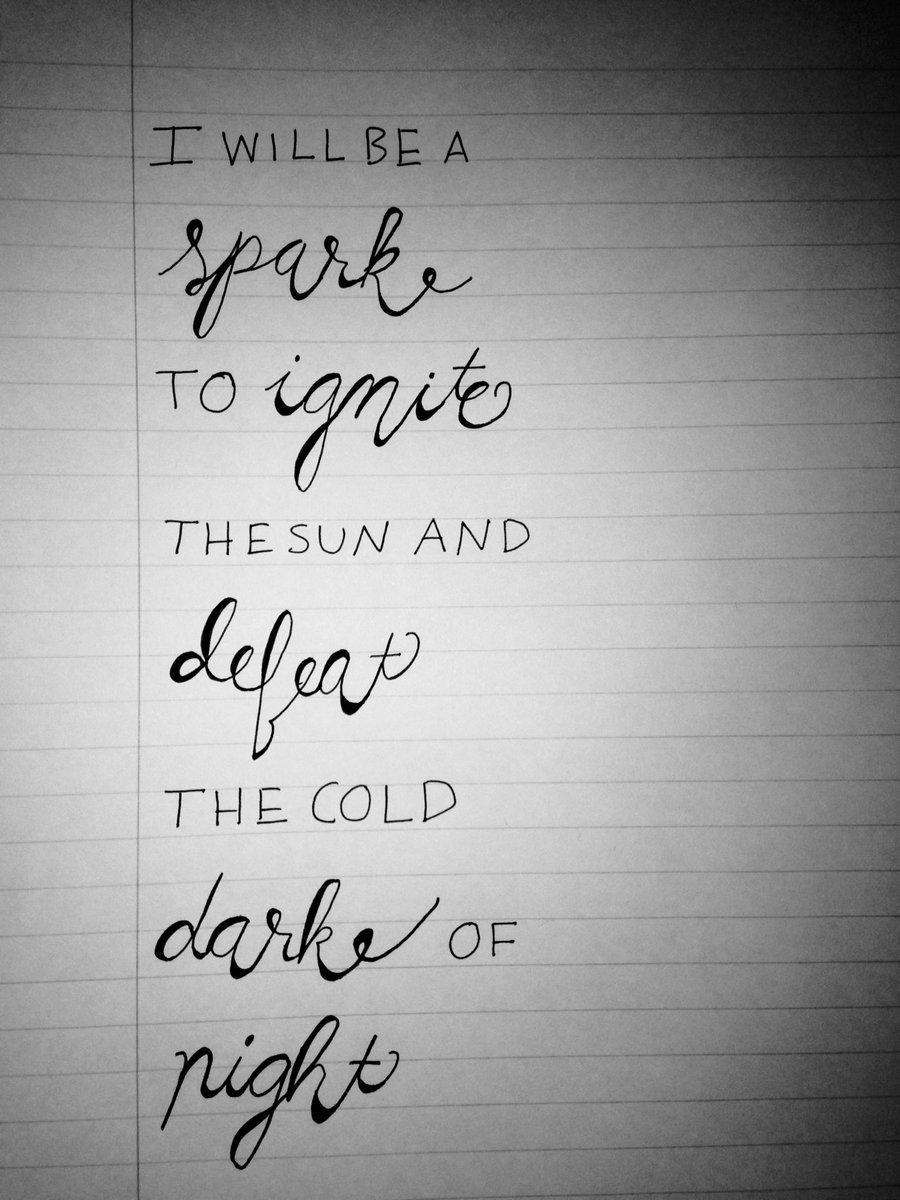 I WILL BE A
spark
TO ignite
THE SUN AND
defeat
THE COLD
dark OF
night